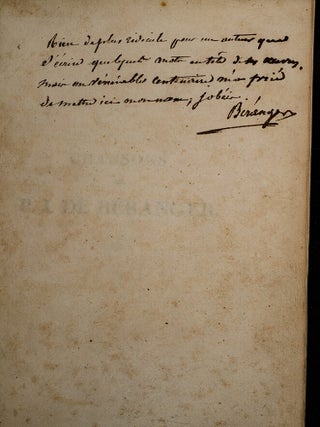 Rien de plus ridicule pour un auteur que
d'écrire quelques mots en tête de ses œuvres,
mais un vénérable centenaire m'a prié
de mettre ici mon nom; j'obéis.
Béranger
CHANSONS
P. J. DE BÉRANGER